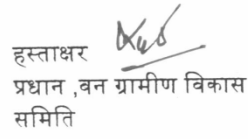 हस्ताक्षर
प्रधान ,वन ग्रामीण विकास
समिति